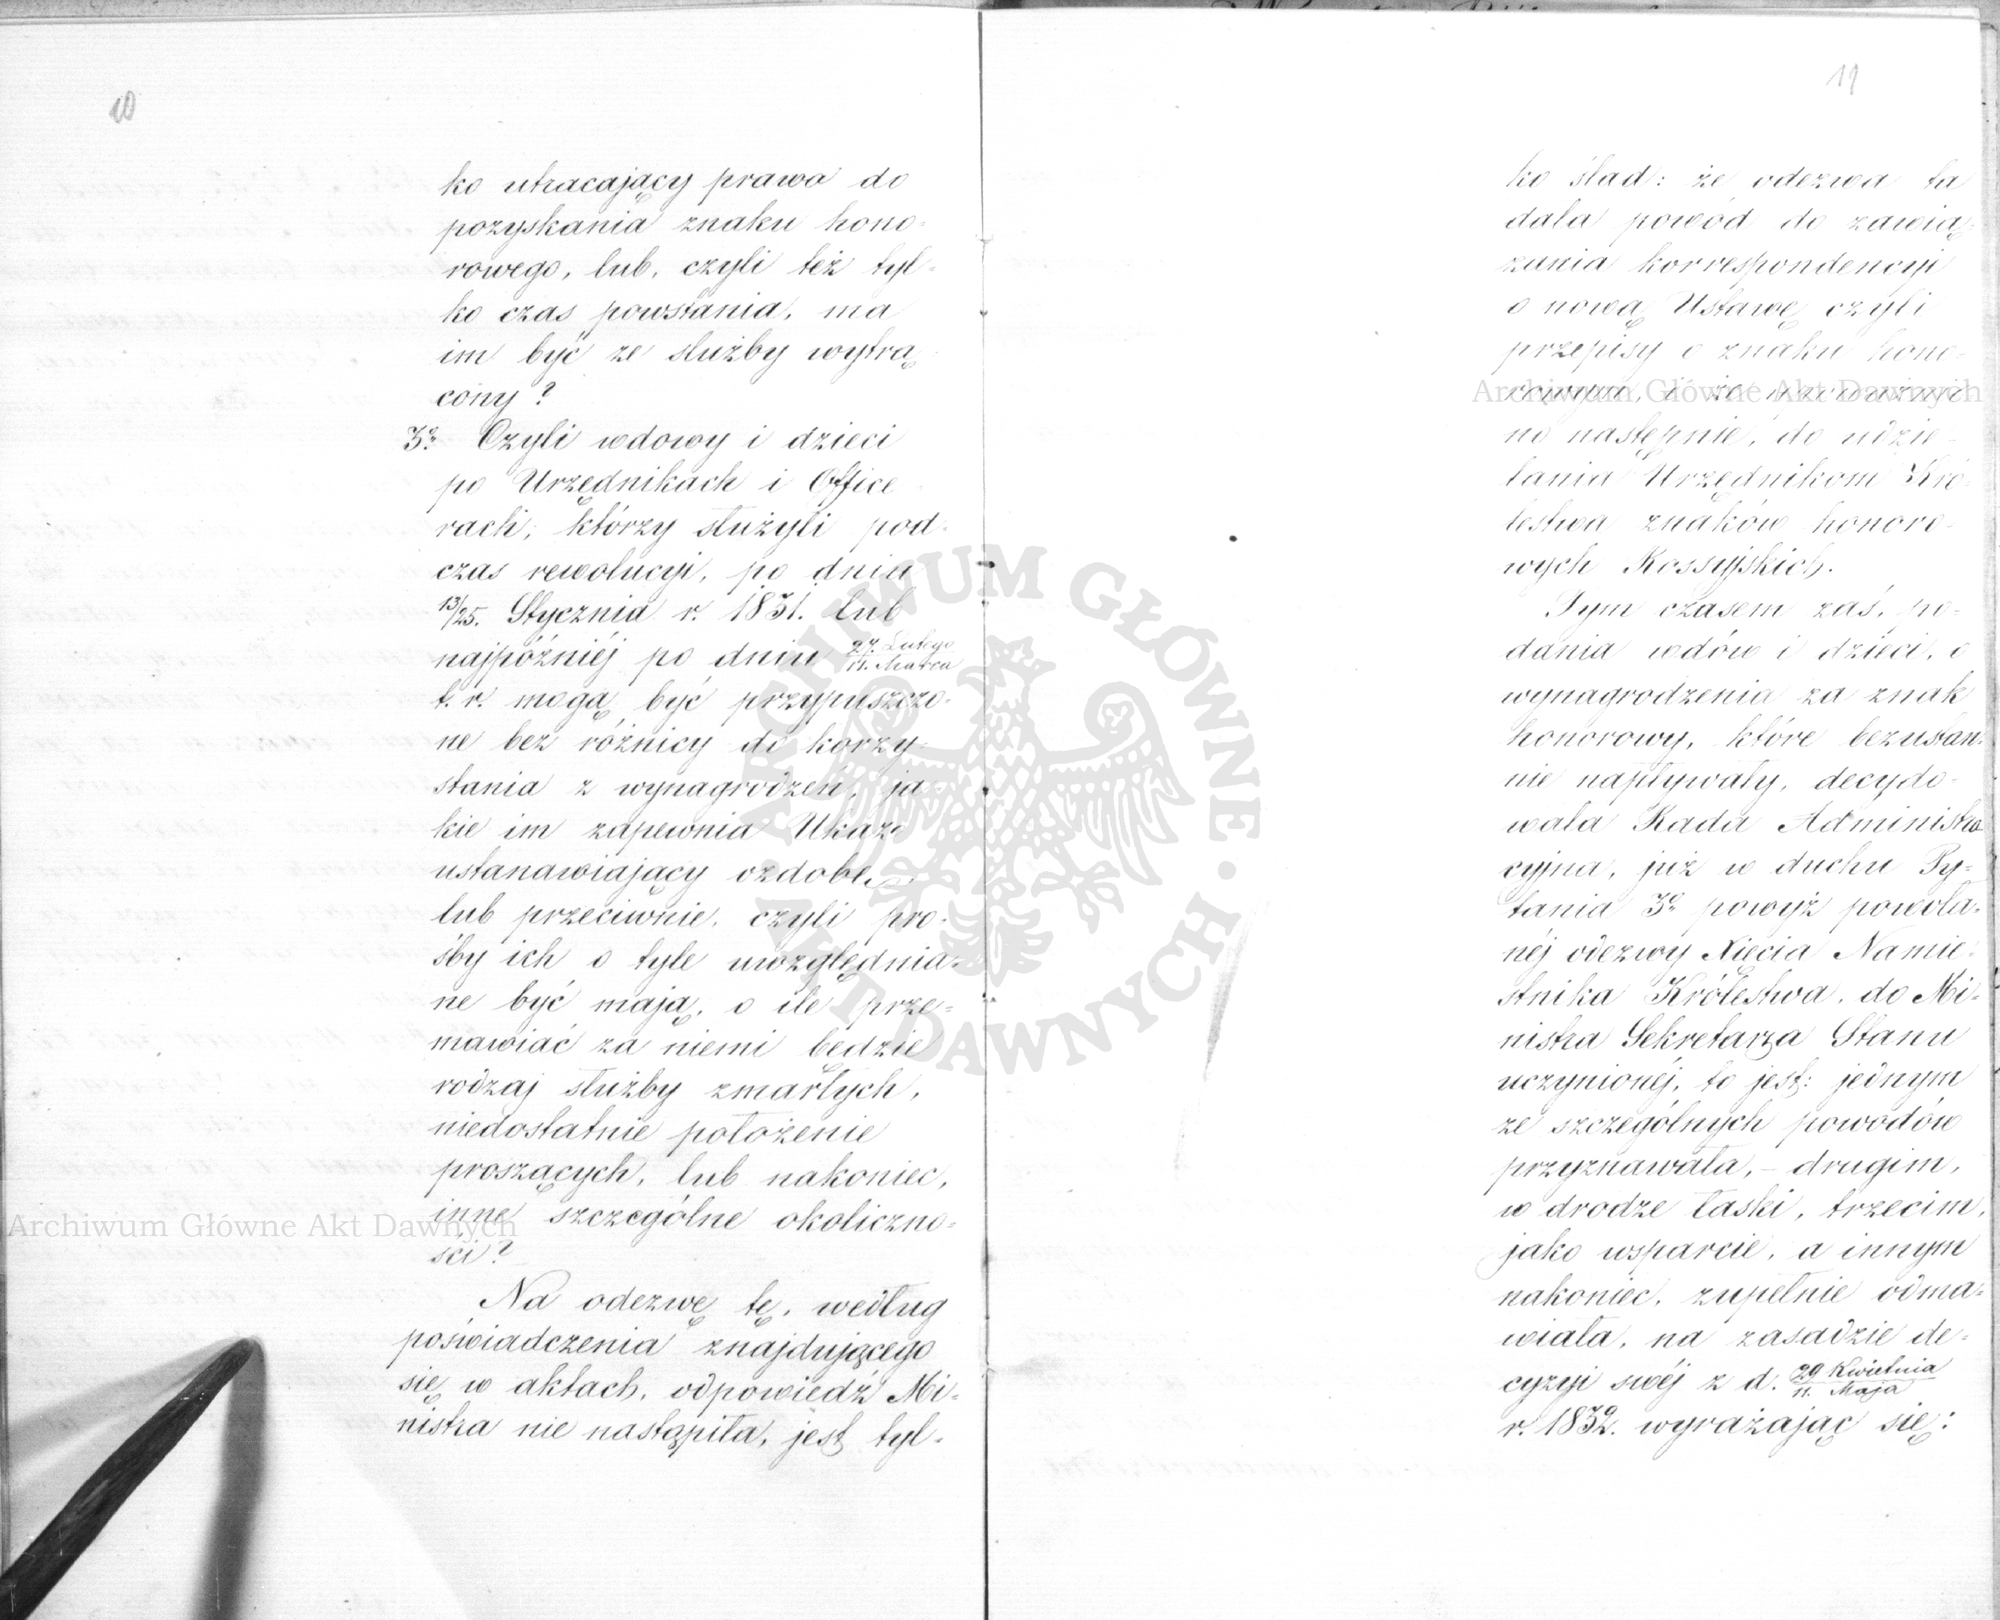 10
ko utracający prawo do
pozyskania znaku hono-
rowego, lub, czyli też tyl-
ko czas powstania, ma
im być ze służby wytrą-
cony?
3º Czyli wdowy i dzieci
po Urzędnikach i Office-
rach, którzy służyli pod-
czas rewolucyi, po dniu
13/25. Stycznia r. 1831. lub
najpóźniéj po dniu 27. Lutego / 11. Marca
t. r. mogą być przypuszczo-
ne bez różnicy do korzy-
stania z wynagrodzeń, ja-
kie im zapewnia Ukaz
ustanawiający ozdobę,
lub przeciwnie, czyli pro-
śby ich o tyle uwzględnia-
ne być mają, o ile prze-
mawiać za niemi będzie
rodzaj służby zmarłych,
niedostatnie położenie
proszących, lub nakoniec,
inne szczególne okoliczno-
ści?
Na odezwę tę, według
poświadczenia znajdującego
się w aktach, odpowiedź Mi-
nistra nie nastąpiła, jest tyl-
11
ko ślad: że odezwa ta
dała powód do zawią-
zania korrespondencyi
o nową Ustawę czyli
przepisy o znaku hono-
rowym, i że
no następnie, do udzie-
lania Urzędnikom Kró-
lestwa znaków honoro-
wych Rossyjskich.
Tym czasem zaś, po-
dania wdów i dzieci, o
wynagrodzenia za znak
honorowy, które bezustan-
nie napływały, decydo-
wała Rada Administra-
cyjna, już w duchu Py-
tania 3º powyż powoła-
néj odezwy Xięcia Namie-
stnika Królestwa, do Mi-
nistra Sekretarza Stanu
uczynionéj, to jest: jednym
ze szczególnych powodów
przyznawała, – drugim,
w drodze łaski, trzecim,
jako wsparcie, a innym
nakoniec, zupełnie odma-
wiała, na zasadzie de-
cyzyi swéj z d. 29 Kwietnia / 11. Maja
r. 1832. wyrażając się:
Archiwum Główne Akt Dawnych
Archiwum Główne Akt Dawnych
ARCHIWUM GŁÓWNE AKT DAWNYCH